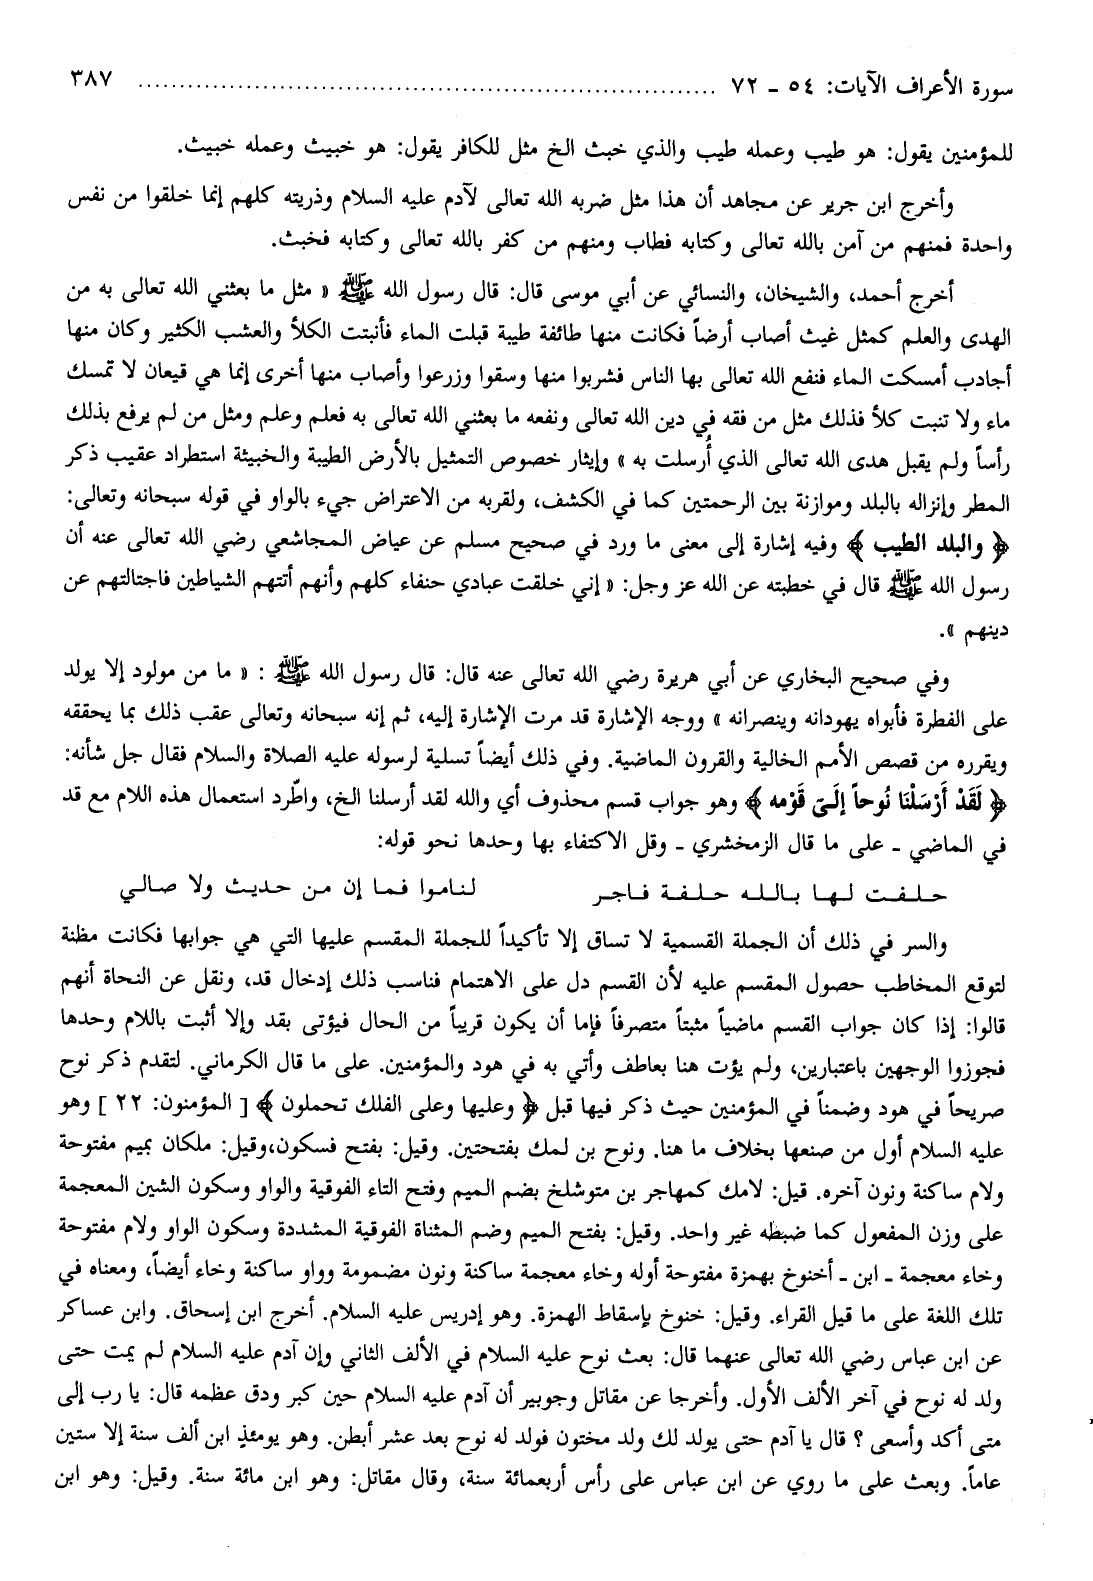 سورة الأعراف الآيات: ٥٤ ـ ٧٢ ........................................................................ ٣٨٧
للمؤمنين يقول: هو طيب وعمله طيب والذي خبث الخ مثل للكافر يقول: هو خبيث وعمله خبيث.
وأخرج ابن جرير عن مجاهد أن هذا مثل ضربه الله تعالى لآدم عليه السلام وذريته كلهم إنما خلقوا من نفس
واحدة فمنهم من آمن بالله تعالى وكتابه فطاب ومنهم من كفر بالله تعالى وكتابه فخبث.
أخرج أحمد، والشيخان، والنسائي عن أبي موسى قال: قال رسول الله ﷺ « مثل ما بعثني الله تعالى به من
الهدى والعلم كمثل غيث أصاب أرضاً فكانت منها طائفة طيبة قبلت الماء فأنبتت الكلأ والعشب الكثير وكان منها
أجادب أمسكت الماء فنفع الله تعالى بها الناس فشربوا منها وسقوا وزرعوا وأصاب منها أخرى إنما هي قيعان لا تمسك
ماء ولا تنبت كلأ فذلك مثل من فقه في دين الله تعالى ونفعه ما بعثني الله تعالى به فعلم وعلم ومثل من لم يرفع بذلك
رأساً ولم يقبل هدى الله تعالى الذي أُرسلت به » وإيثار خصوص التمثيل بالأرض الطيبة والخبيثة استطراد عقيب ذكر
المطر وإنزاله بالبلد وموازنة بين الرحمتين كما في الكشف، ولقربه من الاعتراض جيء بالواو في قوله سبحانه وتعالى:
﴿ والبلد الطيب ﴾ وفيه إشارة إلى معنى ما ورد في صحيح مسلم عن عياض المجاشعي رضي الله تعالى عنه أن
رسول الله ﷺ قال في خطبته عن الله عز وجل: « إني خلقت عبادي حنفاء كلهم وأنهم أتتهم الشياطين فاجتالتهم عن
دينهم ».
وفي صحيح البخاري عن أبي هريرة رضي الله تعالى عنه قال: قال رسول الله ﷺ : « ما من مولود إلا يولد
على الفطرة فأبواه يهودانه وينصرانه » ووجه الإشارة قد مرت الإشارة إليه، ثم إنه سبحانه وتعالى عقب ذلك بما يحققه
ويقرره من قصص الأمم الخالية والقرون الماضية. وفي ذلك أيضاً تسلية لرسوله عليه الصلاة والسلام فقال جل شأنه:
﴿ لَقَدْ أَرْسَلْنَا نُوحاً إِلَىٰ قَوْمه ﴾ وهو جواب قسم محذوف أي والله لقد أرسلنا الخ، واطّرد استعمال هذه اللام مع قد
في الماضي ـ على ما قال الزمخشري ـ وقل الاكتفاء بها وحدها نحو قوله:
حلفت لها بالله حلفة فاجر لناموا فما إن من حديث ولا صالي
والسر في ذلك أن الجملة القسمية لا تساق إلا تأكيداً للجملة المقسم عليها التي هي جوابها فكانت مظنة
لتوقع المخاطب حصول المقسم عليه لأن القسم دل على الاهتمام فناسب ذلك إدخال قد، ونقل عن النحاة أنهم
قالوا: إذا كان جواب القسم ماضياً مثبتاً متصرفاً فإما أن يكون قريباً من الحال فيؤتى بقد وإلا أثبت باللام وحدها
فجوزوا الوجهين باعتبارين، ولم يؤت هنا بعاطف وأتي به في هود والمؤمنين. على ما قال الكرماني. لتقدم ذكر نوح
صريحاً في هود وضمناً في المؤمنين حيث ذكر فيها قبل ﴿ وعليها وعلى الفلك تحملون ﴾ [ المؤمنون: ٢٢ ] وهو
عليه السلام أول من صنعها بخلاف ما هنا. ونوح بن لمك بفتحتين. وقيل: بفتح فسكون،وقيل: ملكان بميم مفتوحة
ولام ساكنة ونون آخره. قيل: لامك كمهاجر بن متوشلخ بضم الميم وفتح التاء الفوقية والواو وسكون الشين المعجمة
على وزن المفعول كما ضبطه غير واحد. وقيل: بفتح الميم وضم المثناة الفوقية المشددة وسكون الواو ولام مفتوحة
وخاء معجمة ـ ابن ـ أخنوخ بهمزة مفتوحة أوله وخاء معجمة ساكنة ونون مضمومة وواو ساكنة وخاء أيضاً، ومعناه في
تلك اللغة على ما قيل القراء. وقيل: خنوخ بإسقاط الهمزة. وهو إدريس عليه السلام. أخرج ابن إسحاق. وابن عساكر
عن ابن عباس رضي الله تعالى عنهما قال: بعث نوح عليه السلام في الألف الثاني وإن آدم عليه السلام لم يمت حتى
ولد له نوح في آخر الألف الأول. وأخرجا عن مقاتل وجويبر أن آدم عليه السلام حين كبر ودق عظمه قال: يا رب إلى
متى أكد وأسعى ؟ قال يا آدم حتى يولد لك ولد مختون فولد له نوح بعد عشر أبطن. وهو يومئذٍ ابن ألف سنة إلا ستين
عاماً. وبعث على ما روي عن ابن عباس على رأس أربعمائة سنة، وقال مقاتل: وهو ابن مائة سنة. وقيل: وهو ابن